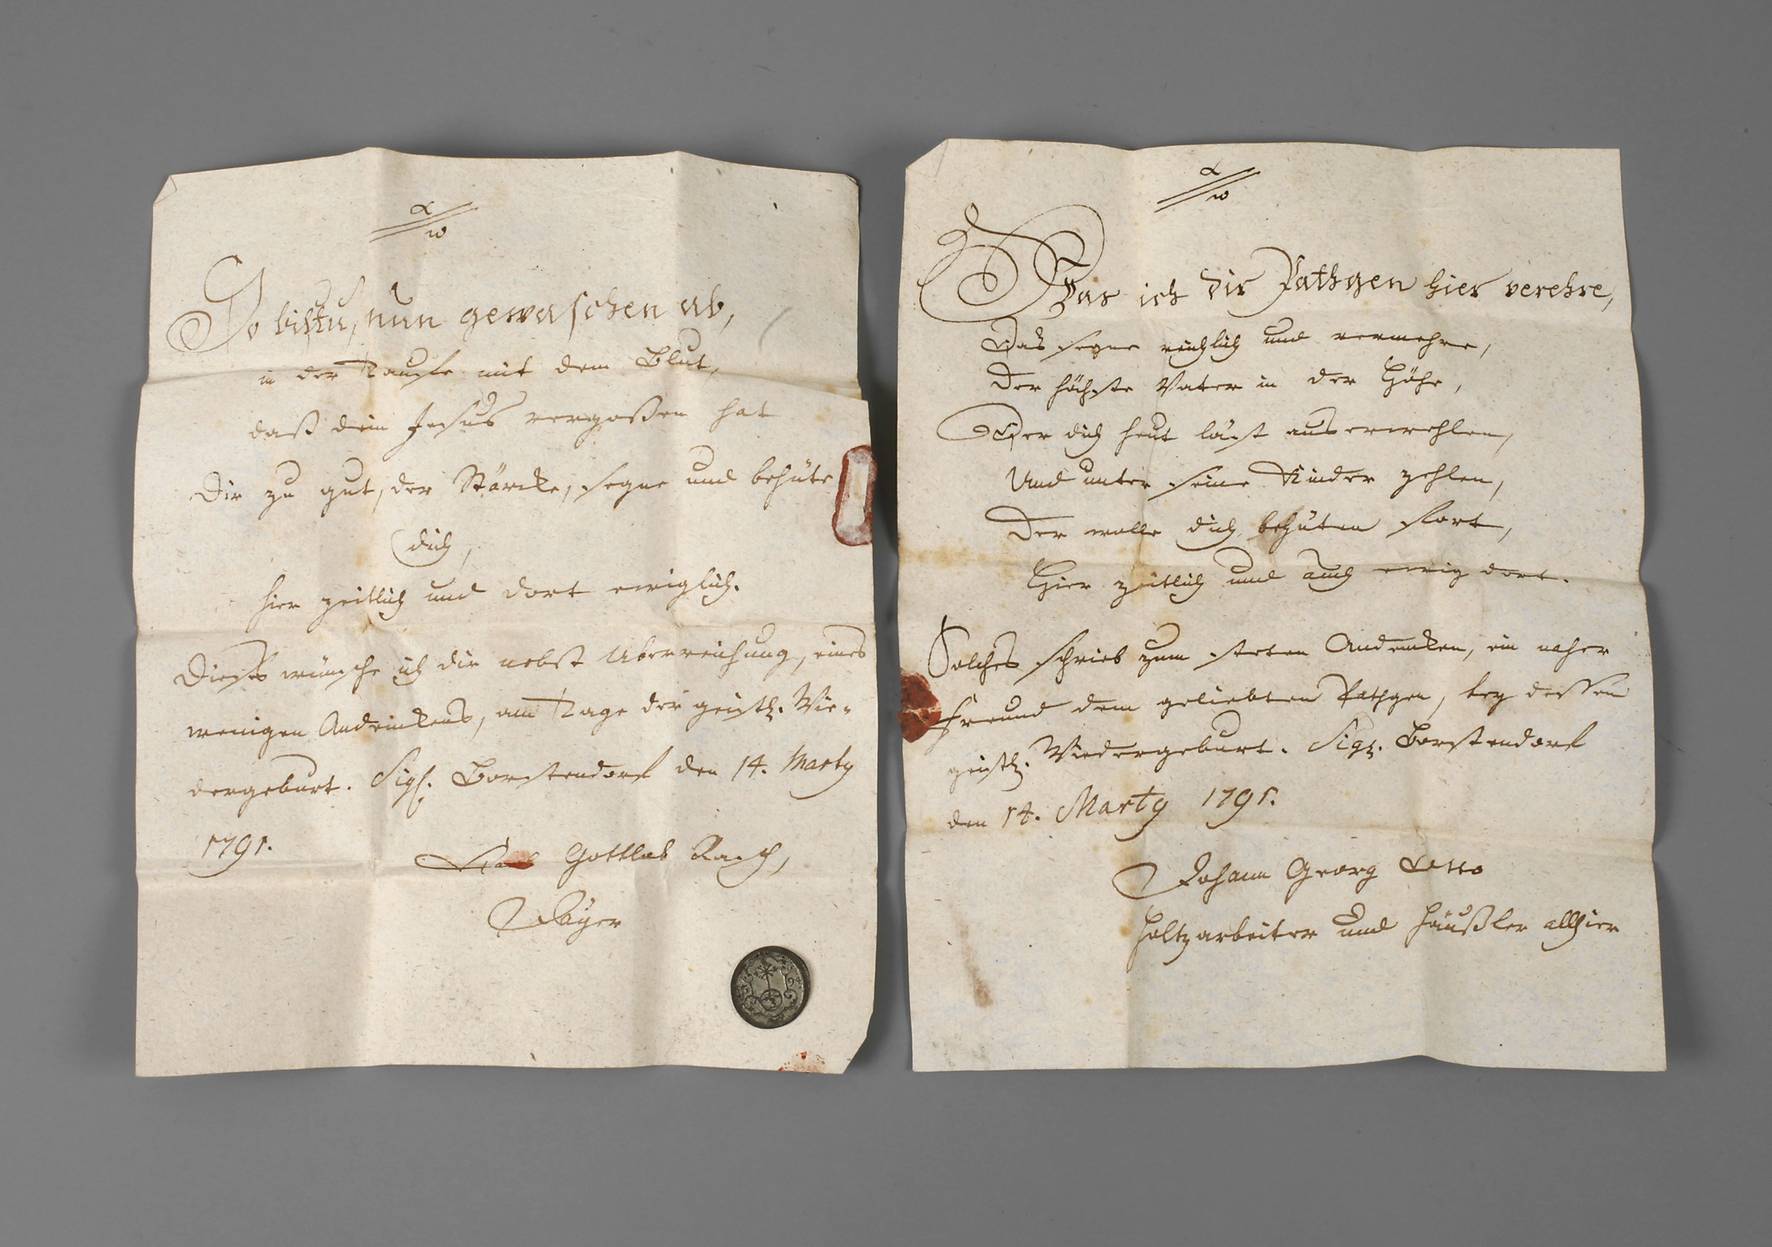 α
ω
So bistu, nun gewaschen ab,
in der Taufe mit dem Blut,
daß dein Jesus vergoßen hat
Dir zu gut, der Stärcke, segne und behüte
dich,
hier zeitlich und dort ewiglich.
Dieses wünsche ich dir nebst Überreichung, eines
wenigen Andenckens, am Tage der geistl. Wie-
dergeburt. Sigl. Borstendorf den 14. Marty
1791.
Gottlob
α
ω
Was ich dir Pathgen hier verehre,
Das segne reichlich und vermehre,
Der höchste Vater in der Höhe,
Der dich heut läst auserwehlen,
Und unter seine Kinder zehlen,
Der wolle dich behüten fort,
Hier zeitlich und auch ewig dort.
Solches schrieb zum steten Andencken, ein naher
Freund dem geliebten Pathgen, bey dessen
geistl. Wiedergeburt. Sigl. Borstendorf
den 14. Marty 1791.
Johann Georg Otto
Holtzarbeiter und Häußler allhier